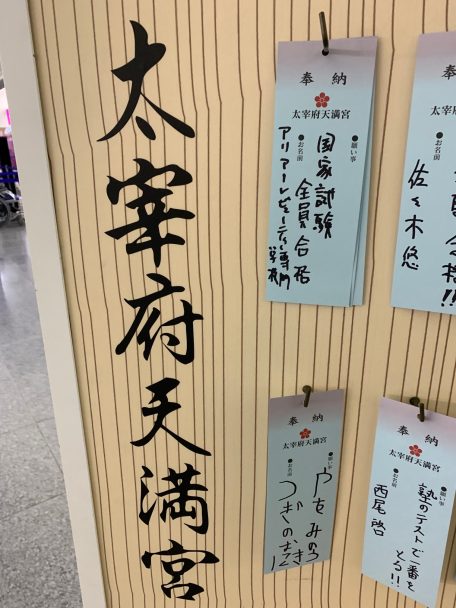 太宰府天満宮
奉納
太宰府天満宮
●願い事
国家試験
全員合格
●お名前
アリアーレビューティー専門学校
奉納
太宰府天満宮
●お名前
合格!!
佐々木悠
奉納
太宰府天満宮
●願い事
●お名前
奉納
太宰府天満宮
●願い事
塾のテストで一番を
とる!!
●お名前
西尾